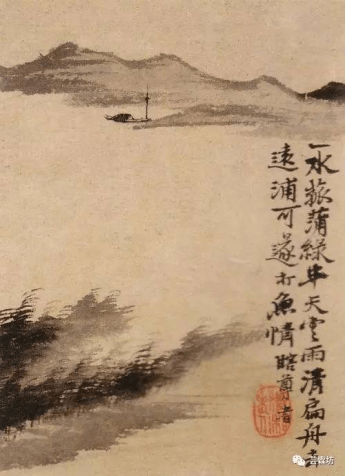 一水菰蒲綠半天雲雨清扁舟
遠浦可遂打魚情 瞎尊者
芸霖坊